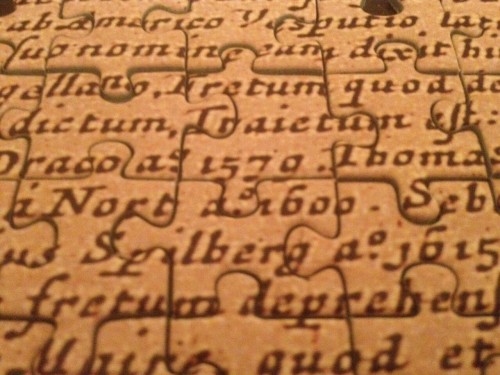 ab americo Vesputio lat
suo nomine eam dixit hi
gellano, Fretum quod de
dictum, Traiectum est.
Draco aº 1579. Thomas
á Nort aº 1600. Seb
us Spilberg aº 1615
fretum deprehen
Maire quod et